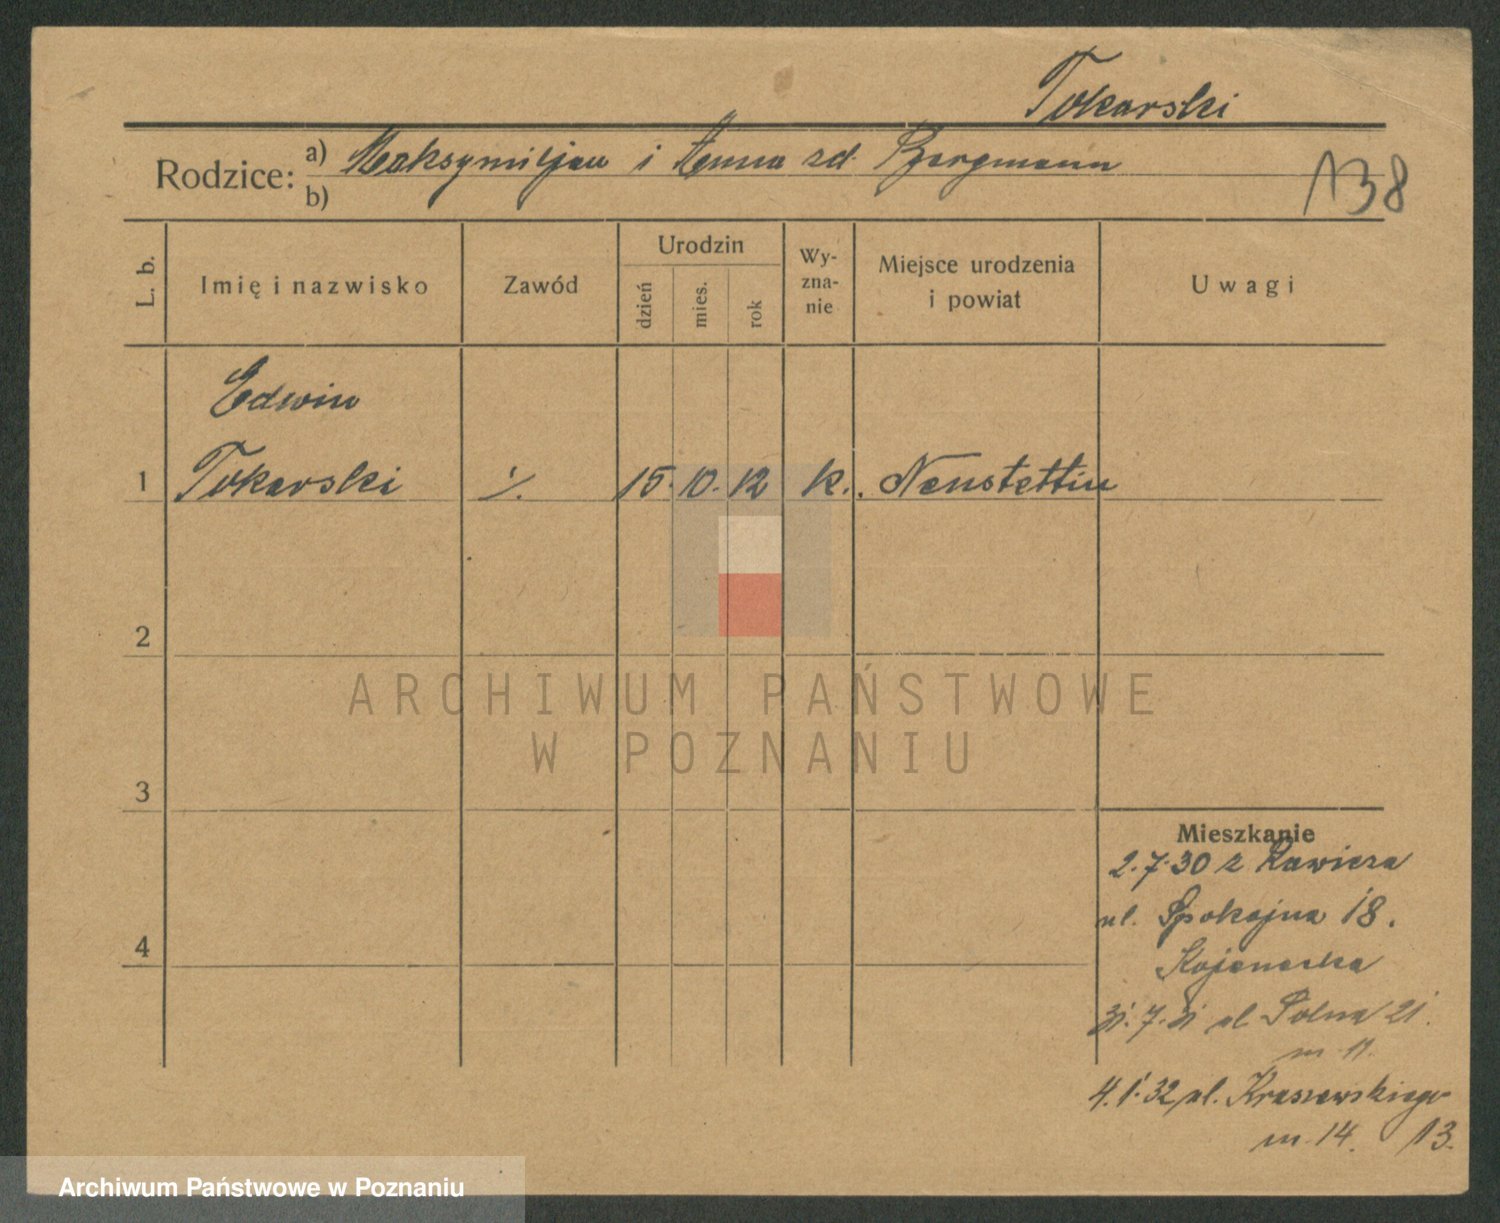 Tokarski
Rodzice: a) Maksymiljan i Anna zd. Bergmann
b)
138
L. b.
Imię i nazwisko
Zawód
Urodzin
dzień
mies.
rok
Wy-
zna-
nie
Miejsce urodzenia
i powiat
Uwagi
Edwin
1 Tokarski ./. 15. 10. 12 k. Neustettin
2
3
4
ARCHIWUM PAŃSTWOWE
W POZNANIU
Mieszkanie
2.7.30 z Rawicza
ul. Spokojna 18.
31.7.31 ul Polna 21.
m 11.
4.1.32 ul. Kraszewskiego
m 14. 13.
Archiwum Państwowe w Poznaniu